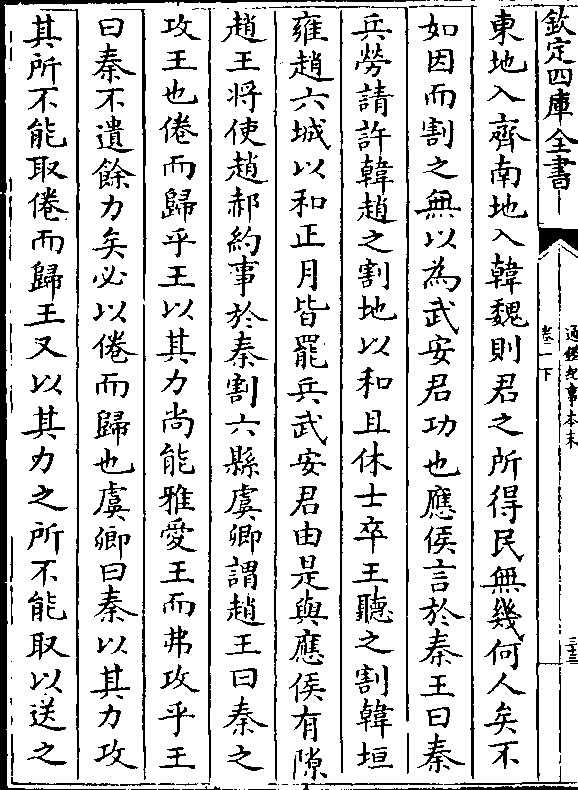 欽定四庫全書
通鑑紀事本末
卷一下
三十三
東地入齊南地入韓魏則君之所得民無幾何人矣不
如因而割之無以為武安君功也應侯言於秦王曰秦
兵勞請許韓趙之割地以和且休士卒王聽之割韓垣
雍趙六城以和正月皆罷兵武安君由是與應侯有隙
趙王將使趙郝約事於秦割六縣虞卿謂趙王曰秦之
攻王也倦而歸乎王以其力尚能雅愛王而弗攻乎王
曰秦不遺餘力矣必以倦而歸也虞卿曰秦以其力攻
其所不能取倦而歸王又以其力之所不能取以送之